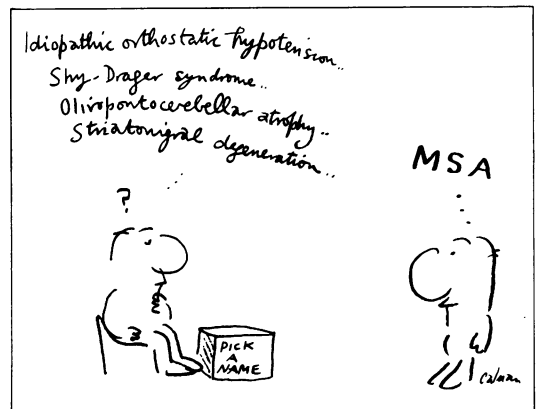 Idiopathic orthostatic hypotension..
Shy-Drager syndrome..
Olivopontocerebellar atrophy..
Striatonigral degeneration..
?
MSA
PICK
A
NAME
Calman